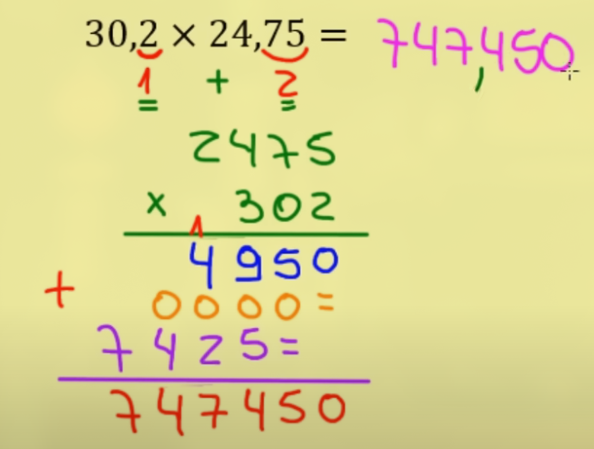 30,2 × 24,75 = 747,450
1 + 2
= =
2475
x 302
1
4950
+ 0000=
7425=
747450